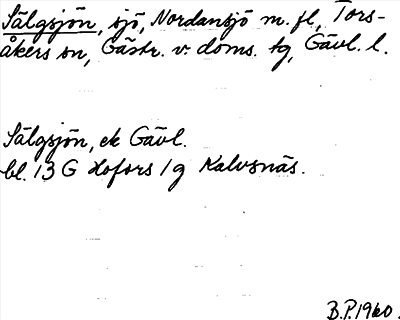 Sälgsjön, sjö, Nordansjö m. fl., Tors-
åkers sn, Gästr. v. doms. tg, Gävl. l.
Sälgsjön, ek Gävl.
bl. 13 G Hofors 1g Kalvsnäs.
B.P. 1960.